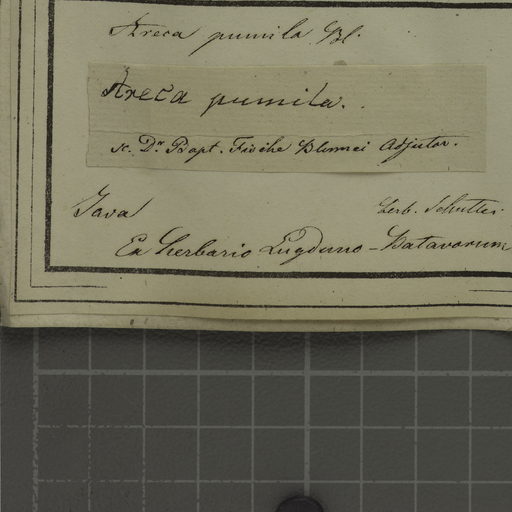 Areca pumila Bl.
Areca pumila.
sc. Dr. Bapt. Fische Blumei Adjutor.
Java
Herb. Schultes
Ex herbario Lugduno-Batavorum